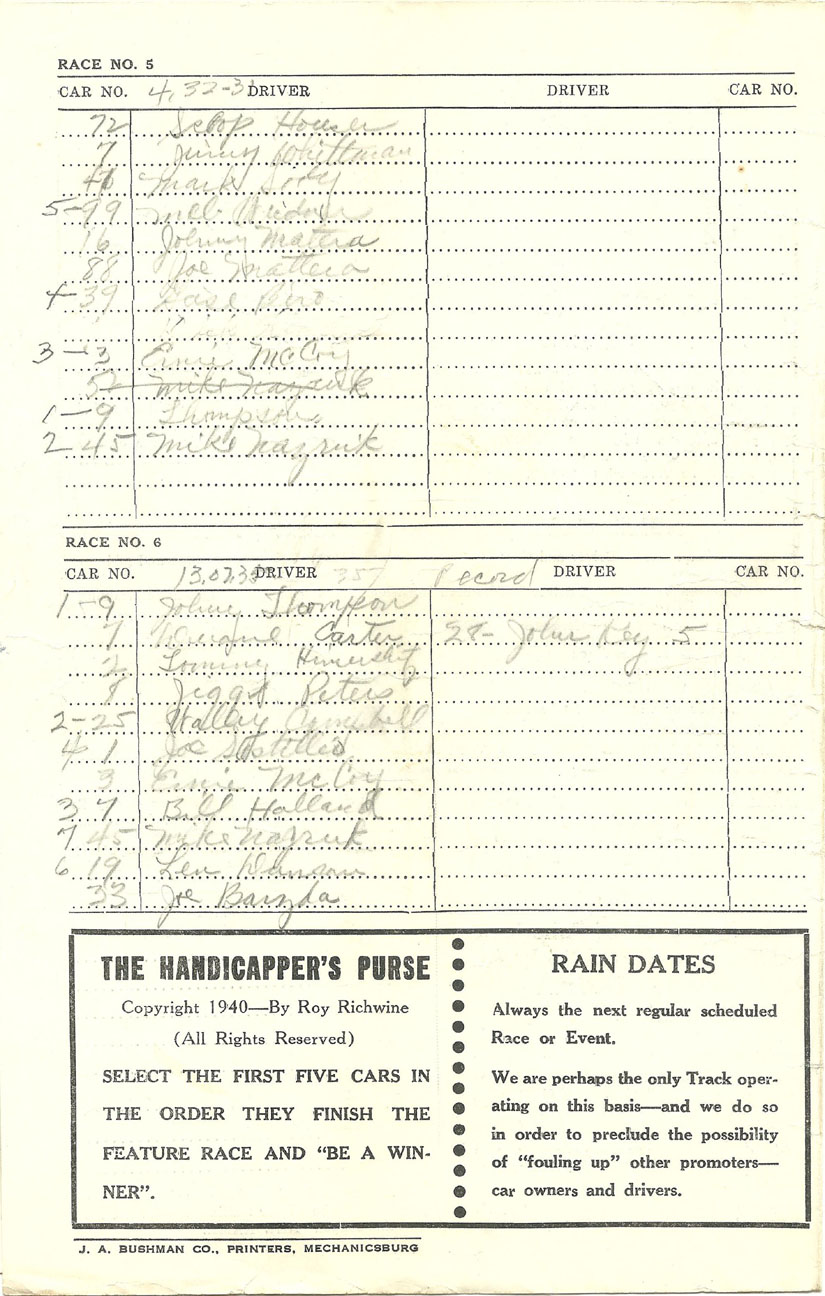 RACE NO. 5
CAR NO. 4,32-3 DRIVER DRIVER CAR NO.
72 Scoop Houser
7 Jimmy Whittman
Mark
5-99
16 Johnny Matera
88 Joe Mattera
4-39
3-3 Ernie McCoy
Mike Nazruk
1-9 Thompson
2 45 Mike Nazruk
RACE NO. 6
CAR NO. 13,07.3 DRIVER 357 Record DRIVER CAR NO.
1-9 Johny Thompson
7 Carter 28- John Key 5
2 Tommy
8 Jiggs Peters
2-25 Walley Campbell
4 1 Joe
3 Ernie McCoy
3 7 Bill Holland
7 45 Mike Nazruk
6 19 Len
33 Joe Barzda
THE HANDICAPPER'S PURSE
Copyright 1940—By Roy Richwine
(All Rights Reserved)
SELECT THE FIRST FIVE CARS IN
THE ORDER THEY FINISH THE
FEATURE RACE AND "BE A WIN-
NER".
RAIN DATES
Always the next regular scheduled
Race or Event.
We are perhaps the only Track oper-
ating on this basis—and we do so
in order to preclude the possibility
of "fouling up" other promoters—
car owners and drivers.
J. A. BUSHMAN CO., PRINTERS, MECHANICSBURG